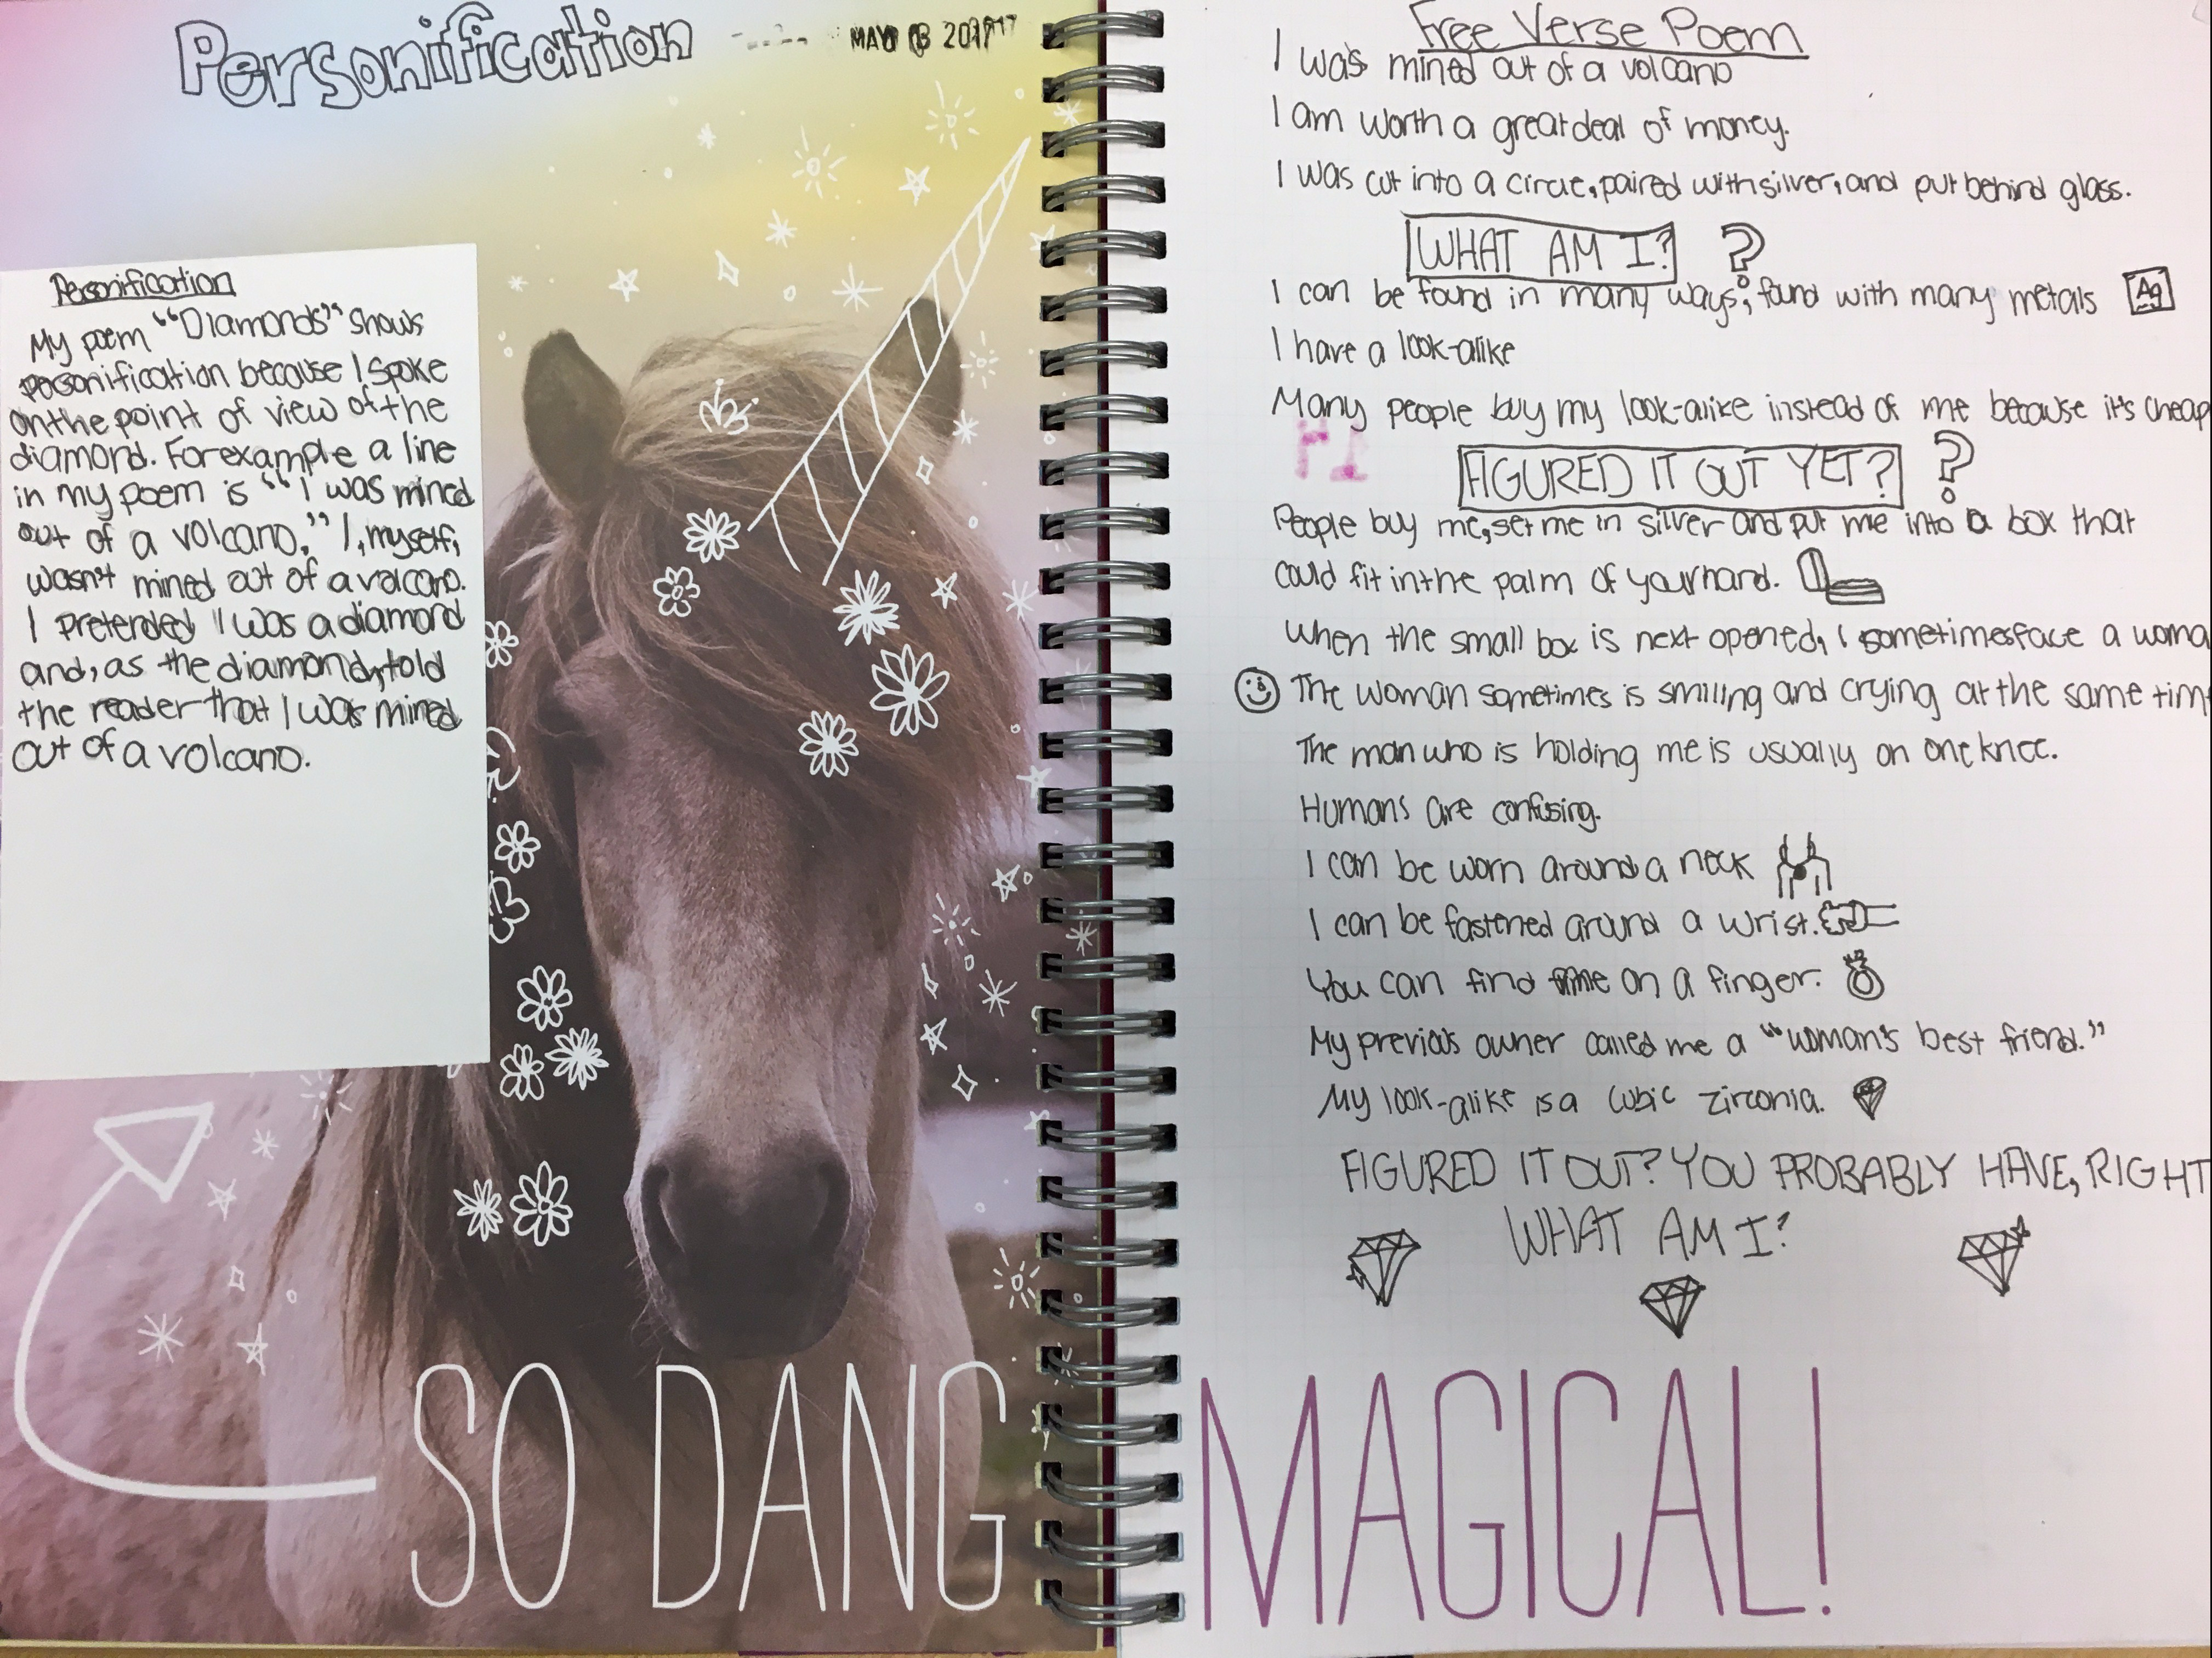 Personification
MAY 2017
Personification
My poem "Diamonds" shows
personification because I spoke
on the point of view of the
diamond. For example a line
in my poem is "I was mined
out of a volcano." I, myself,
wasn't mined out of a volcano.
I pretended I was a diamond
and, as the diamond, told
the reader that I was mined
out of a volcano.
SO DANG
Free Verse Poem
I was mined out of a volcano
I am worth a great deal of money.
I was cut into a circle, paired with silver, and put behind glass.
WHAT AM I? ?
I can be found in many ways; found with many metals Ag
I have a look-alike
Many people buy my look-alike instead of me because it's cheap
HI
FIGURED IT OUT YET? ?
People buy me, set me in silver and put me into a box that
could fit in the palm of your hand.
When the small box is next opened, I sometimes face a woma
The woman sometimes is smiling and crying at the same tim
The man who is holding me is usually on one knee.
Humans are confusing.
I can be worn around a neck
I can be fastened around a wrist.
You can find me on a finger.
My previous owner called me a "woman's best friend."
My look-alike is a cubic zirconia.
FIGURED IT OUT? YOU PROBABLY HAVE, RIGHT
WHAT AM I?
MAGICAL!